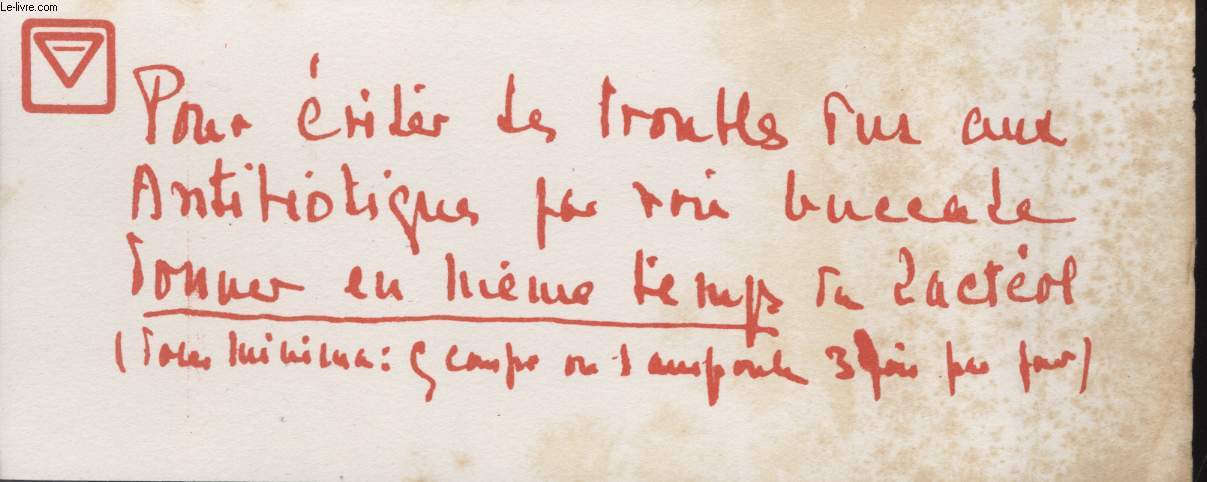 Le-livre.com
Pour éviter les troubles dus aux
Antibiotiques par voie buccale
donner en même temps du Lactéol
(doses minima: 5 comps ou 1 ampoule 3 fois par jour)